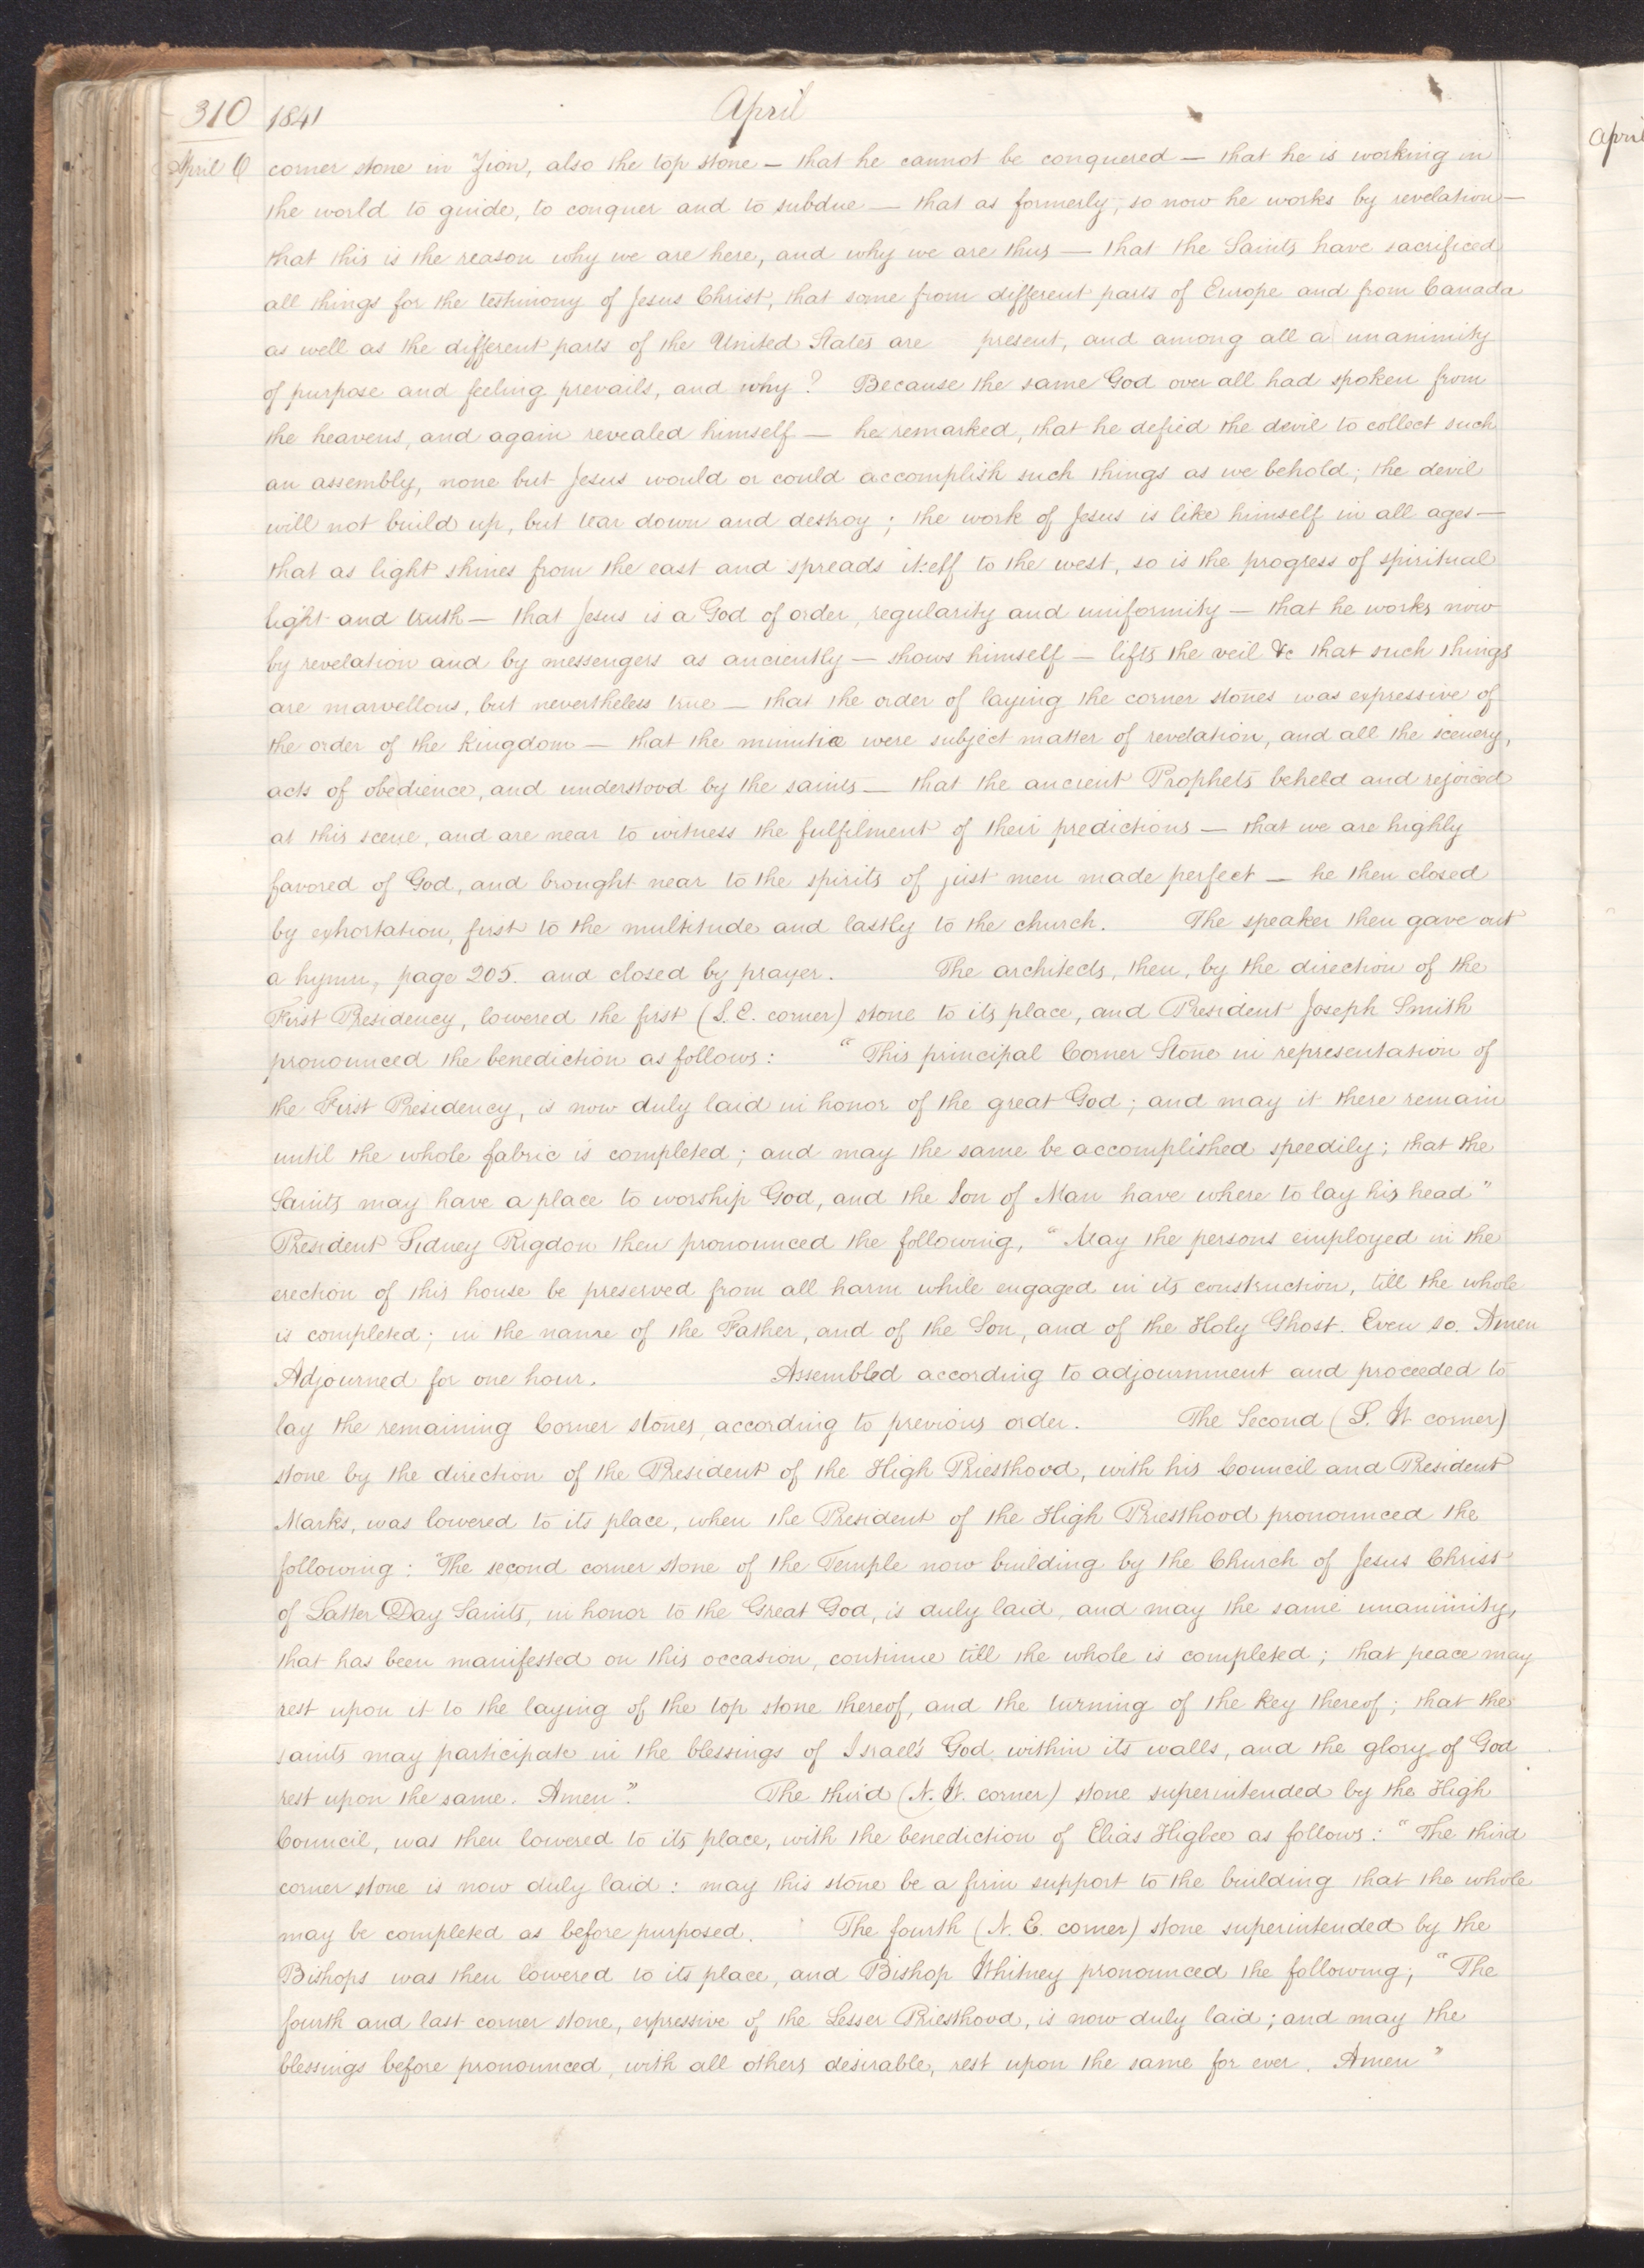 310 1841 April
April 6 corner stone in Zion, also the top stone — that he cannot be conquered — that he is working in
the world to guide, to conquer and to subdue — that as formerly, so now he works by revelation —
that this is the reason why we are here, and why we are thus — that the Saints have sacrificed
all things for the testimony of Jesus Christ, that some from different parts of Europe and from Canada
as well as the different parts of the United States are present, and among all a unanimity
of purpose and feeling prevails, and why? Because the same God over all had spoken from
the heavens, and again revealed himself — he remarked, that he defied the devil to collect such
an assembly, none but Jesus would or could accomplish such things as we behold; the devil
will not build up, but tear down and destroy; the work of Jesus is like himself in all ages —
that as light shines from the east and spreads itself to the west, so is the progress of spiritual
light and truth — that Jesus is a God of order, regularity and uniformity — that he works now
by revelation and by messengers as anciently — shows himself — lifts the veil &c that such things
are marvellous, but nevertheless true — that the order of laying the corner stones was expressive of
the order of the kingdom — that the minutiæ were subject matter of revelation, and all the scenery,
acts of obedience, and understood by the saints — that the ancient Prophets beheld and rejoiced
at this scene, and are near to witness the fulfilment of their predictions — that we are highly
favored of God, and brought near to the spirits of just men made perfect — he then closed
by exhortation, first to the multitude and lastly to the church. The speaker then gave out
a hymn, page 205. and closed by prayer. The architects, then, by the direction of the
First Presidency, lowered the first (S. E. corner) stone to its place, and President Joseph Smith
pronounced the benediction as follows: "This principal Corner Stone in representation of
the First Presidency, is now duly laid in honor of the great God; and may it there remain
until the whole fabric is completed; and may the same be accomplished speedily; that the
Saints may have a place to worship God, and the Son of Man have where to lay his head"
President Sidney Rigdon then pronounced the following, "May the persons employed in the
erection of this house be preserved from all harm while engaged in its construction, till the whole
is completed; in the name of the Father, and of the Son, and of the Holy Ghost. Even so. Amen
Adjourned for one hour. Assembled according to adjournment and proceeded to
lay the remaining Corner stones, according to previous order. The Second (S. W. corner)
stone by the direction of the President of the High Priesthood, with his Council and President
Marks, was lowered to its place, when the President of the High Priesthood pronounced the
following: "The second corner stone of the Temple now building by the Church of Jesus Christ
of Latter Day Saints, in honor to the Great God, is duly laid, and may the same unanimity,
that has been manifested on this occasion, continue till the whole is completed; that peace may
rest upon it to the laying of the top stone thereof, and the turning of the key thereof; that the
saints may participate in the blessings of Israel's God, within its walls, and the glory of God
rest upon the same. Amen." The third (N. W. corner) stone superintended by the High
Council, was then lowered to its place, with the benediction of Elias Higbee as follows: "The third
corner stone is now duly laid: may this stone be a firm support to the building that the whole
may be completed as before purposed. The fourth (N. E. corner) stone superintended by the
Bishops was then lowered to its place, and Bishop Whitney pronounced the following; "The
fourth and last corner stone, expressive of the Lesser Priesthood, is now duly laid; and may the
blessings before pronounced, with all others desirable, rest upon the same for ever. Amen"
April